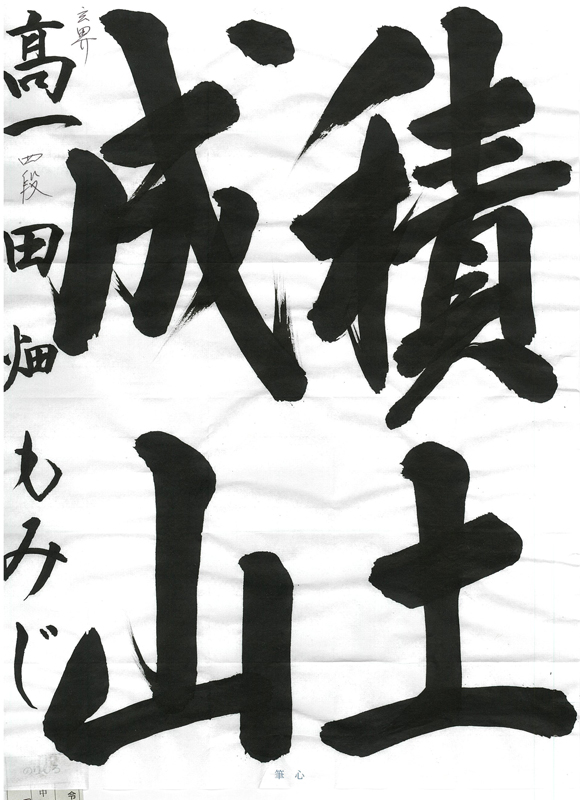 積土
成山
玄界
高一 四段 田畑 もみじ
筆心
令
中